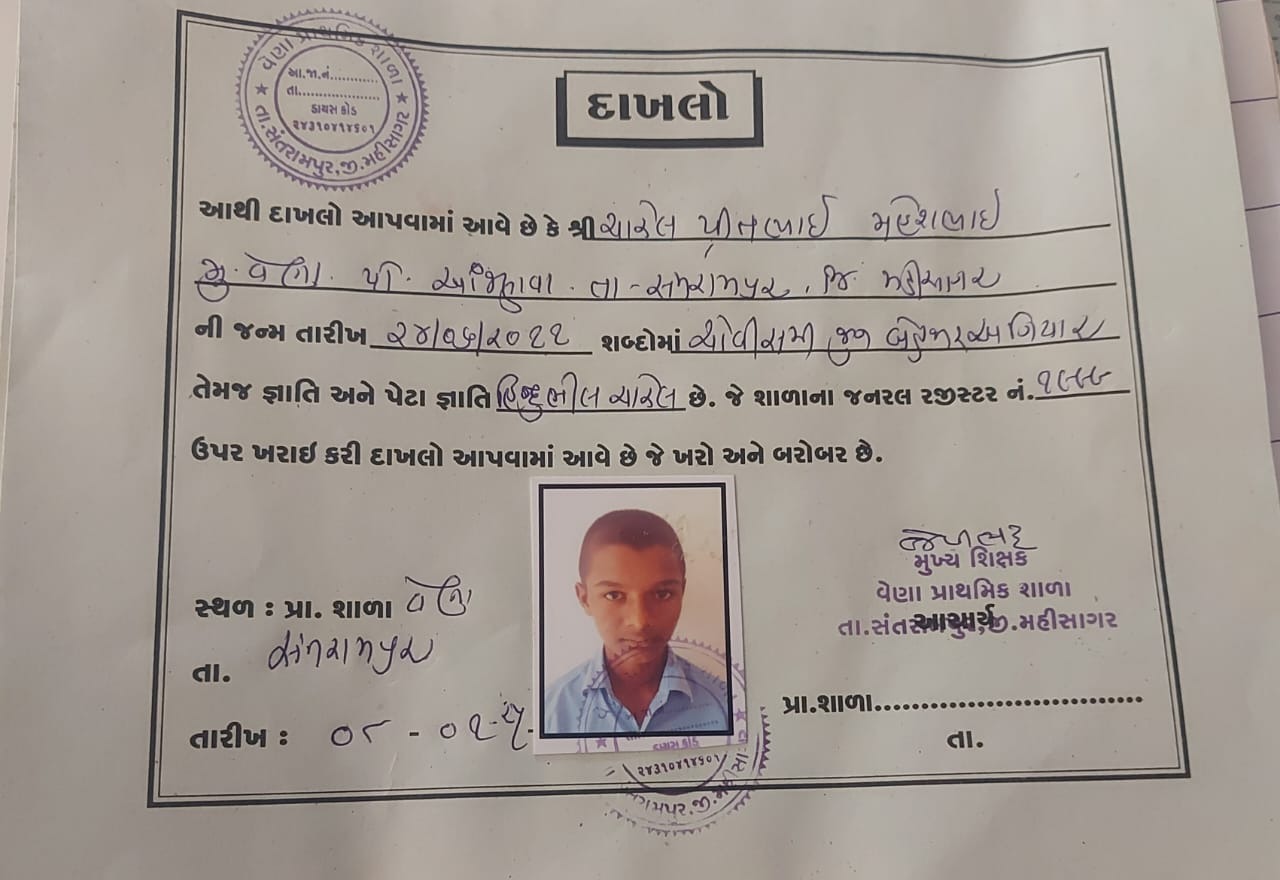 વેણા પ્રાથમિક શાળા
આ.જા.નં............
તા......................
ડાયસ કોડ
૨૪૩૧૦૪૧૪૬૦૧
તા.સંતરામપુર,જી.મહીસાગર
દાખલો
આથી દાખલો આપવામાં આવે છે કે શ્રી ચારેલ પ્રીતભાઈ મહેશભાઈ
મુ. વેણા. પો. આંજણવા. તા-સંતરામપુર. જિ. મહીસાગર
ની જન્મ તારીખ ૨૪/૦૬/૨૦૧૧ શબ્દોમાં ચોવીસમી જૂન બેહજારઅગિયાર
તેમજ જ્ઞાતિ અને પેટા જ્ઞાતિ હિન્દુભીલ ચારેલ છે. જે શાળાના જનરલ રજીસ્ટર નં.
ઉપર ખરાઇ કરી દાખલો આપવામાં આવે છે જે ખરો અને બરોબર છે.
મુખ્ય શિક્ષક
વેણા પ્રાથમિક શાળા
તા.સંતરામપુર,જી.મહીસાગર
આચાર્ય
સ્થળ : પ્રા. શાળા વેણા
તા. સંતરામપુર
તારીખ : ૦૮-૦૧-૨૫
પ્રા.શાળા...............................
તા.
ડાયસ કોડ
૨૪૩૧૦૪૧૪૬૦૧